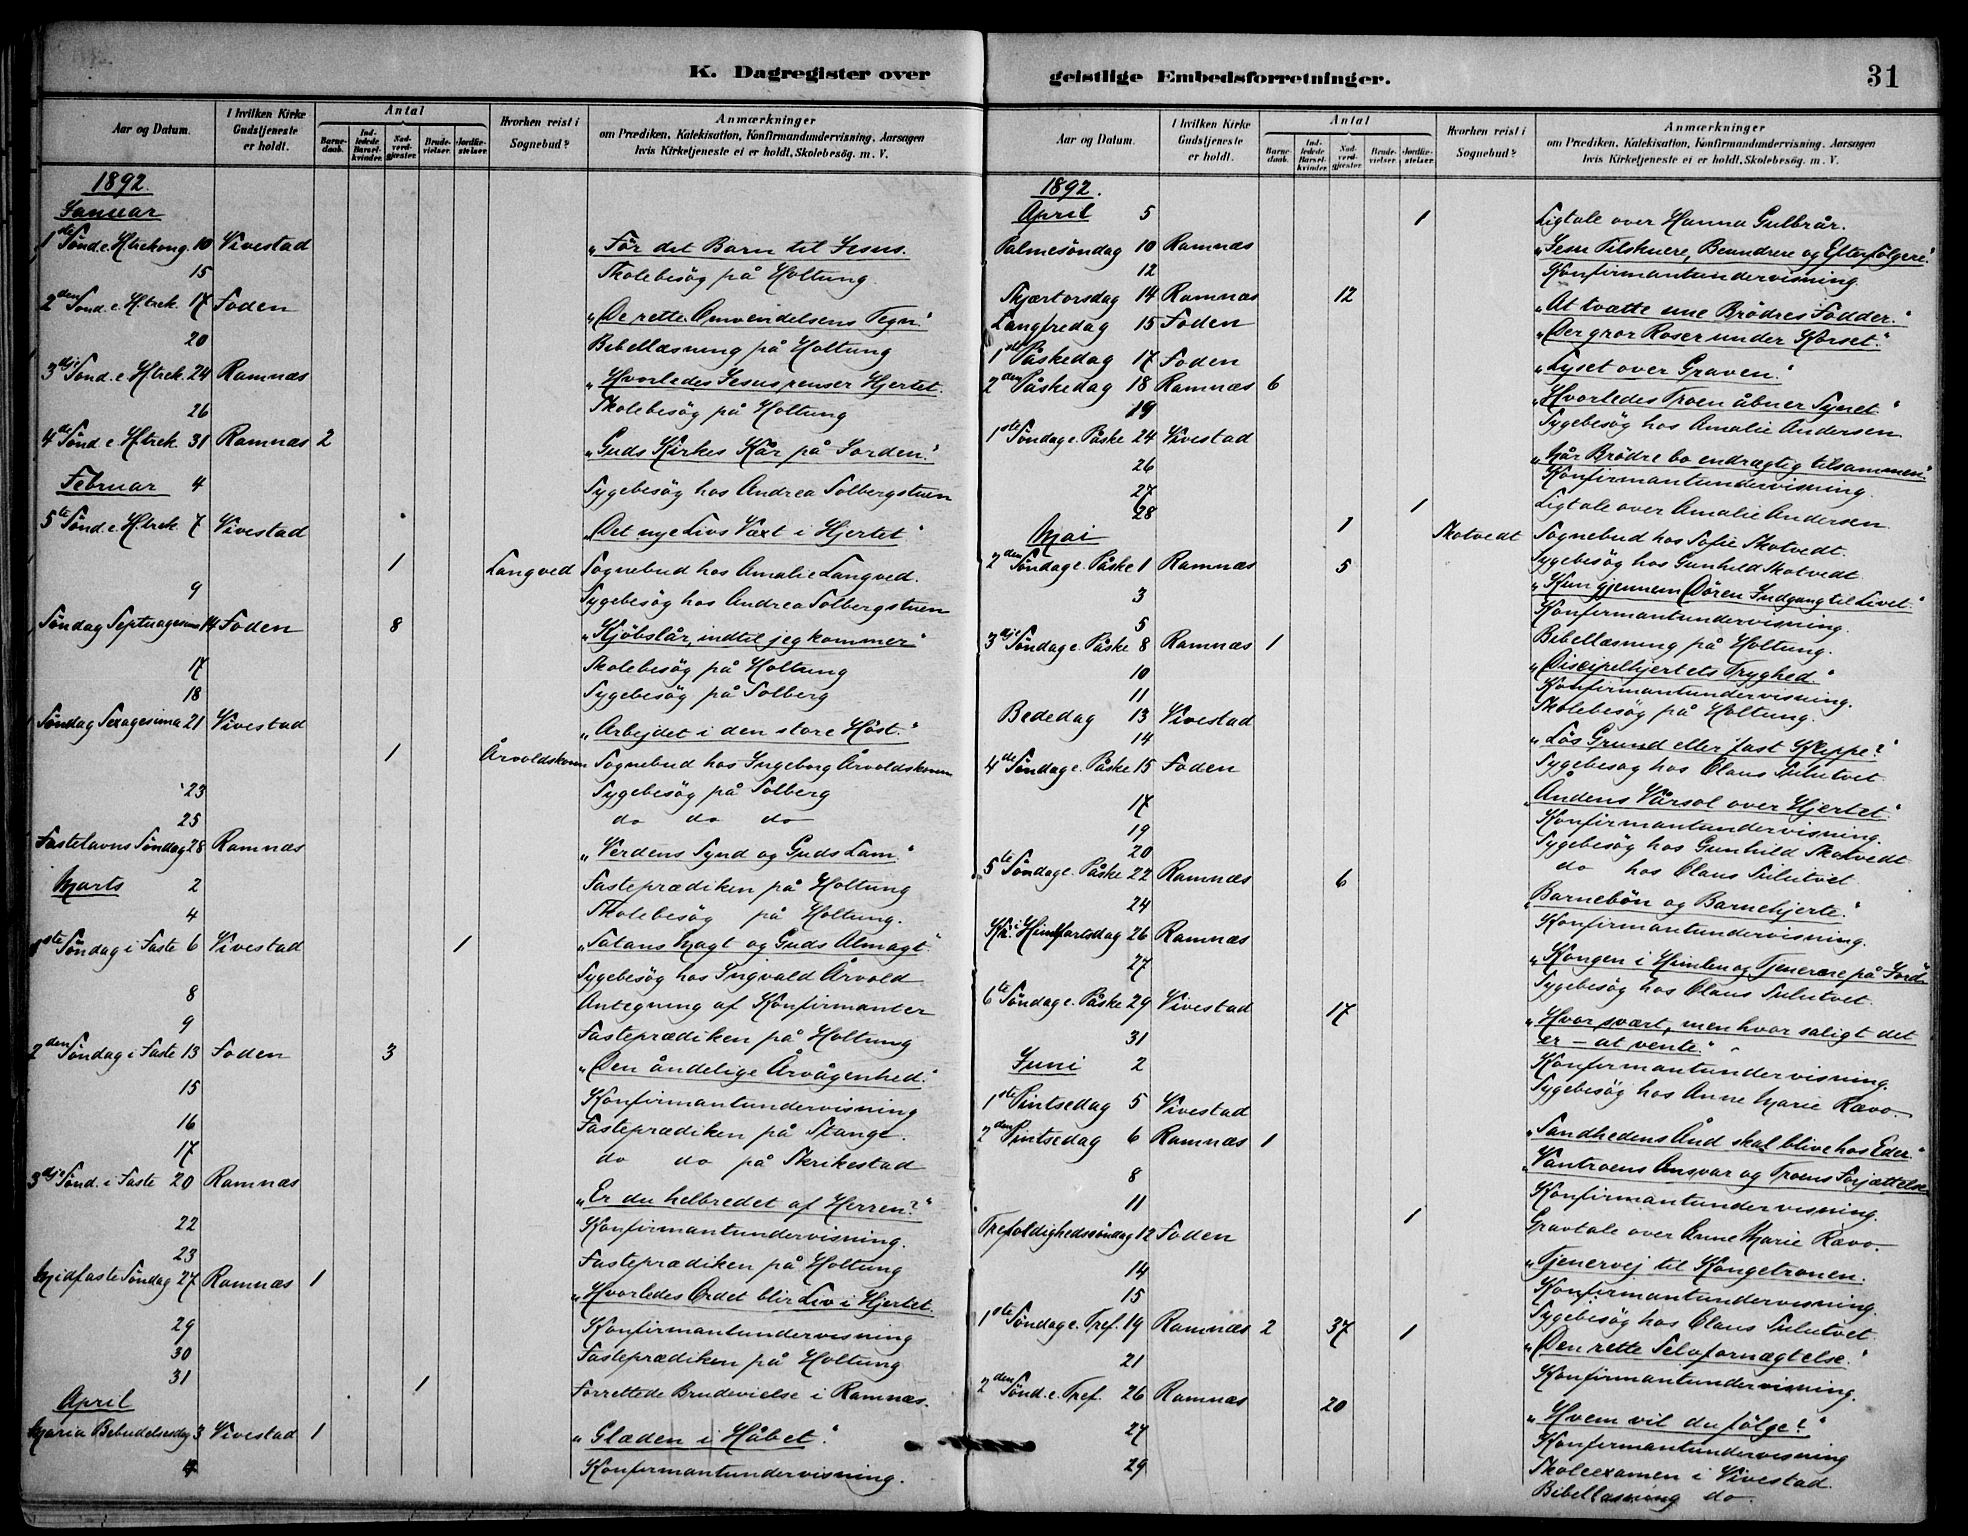 K. Dagregister over
Aar og Datum. I hvilken Kirke Gudstjeneste er holdt. Antal Barnedaab. Indledede Barselkvinder. Nadverdgjester. Brudevielser. Jordfæstelser. Hvorhen reist i Sognebud? Anmærkninger om Prædiken, Katekisation, Konfirmandundervisning, Aarsagen hvis Kirketjeneste ei er holdt, Skolebesög m. V.
1892.
Januar
1ste Sönd. e. H. trekong. 10 Vivestad „Før det Barn til Jesus.
15 Skolebesög på Holtung.
2den Sönd. e. H. trek. 17 Foden „De rette Omvendelsens Tegn."
20 Bibellæsning på Holtung
3dje Sönd. e. H. trek. 24 Ramnæs „Hvorledes Jesus renser Hjertet.
26 Skolebesög på Holtung
4de Sönd. e. H. trek. 31 Ramnæs 2 „Guds Kirkes Kår på Jorden."
Februar 4 Sygebesög hos Andrea Solbergstuen
5te Sönd. e. H. trek. 7 Vivestad „Det nye Livs Vext i Hjertet."
1 Langved Sognebud hos Amalie Langved.
9 Sygebesög hos Andrea Solbergstuen
Söndag Septuagesima 14 Foden 8 „Kjøbslår, indtil jeg kommer"
17 Skolebesög på Holtung
18 Sygebesög på Solberg
Söndag Sexagesima 21 Vivestad „Arbejdet i den store Höst."
1 Årvoldskonn Sognebud hos Ingeborg Årvoldskonn
23 Sygebesög på Solberg
25 do do do
Fastelavns Söndag 28 Ramnæs „Verdens Synd og Guds Lam."
Marts 2 Fasteprædiken på Holtung
4 Skolebesög på Holtung.
1ste Söndag i Faste 6 Vivestad 1 „Satans Magt og Guds Almagt."
Sygebesög hos Ingvald Årvold
8 Antegning af Konfirmanter
9 Fasteprædiken på Holtung
2den Söndag i Faste 13 Foden 3 „Den åndelige Årvågenhed."
15 Konfirmantundervisning
16 Fasteprædiken på Stange.
17 do do på Skrikestad
3dje Sönd. i Faste 20 Ramnæs „Er du helbredet af Herren?"
22 Konfirmantundervisning.
23 Fasteprædiken på Holtung
Midfaste Söndag 27 Ramnæs 1 „Hvorledes Ordet blir Liv i Hjertet.
29 Konfirmantundervisning
30 Fasteprædiken på Holtung
31 1 Forrettede Brudevielse i Ramnæs.
April
Maria Bebudelsesdag 3 Vivestad 1 „Glæden i Håbet".
4 Konfirmantundervisning.
geistlige Embedsforretninger. 31
Aar og Datum. I hvilken Kirke Gudstjeneste er holdt. Antal Barnedaab. Indledede Barselkvinder. Nadverdgjester. Brudevielser. Jordfæstelser. Hvorhen reist i Sognebud? Anmærkninger om Prædiken, Katekisation, Konfirmandundervisning, Aarsagen hvis Kirketjeneste ei er holdt, Skolebesög m. V.
1892.
April 5 1 Ligtale over Hanna Gulbrår.
Palmesöndag 10 Ramnæs „Jesu Tilskuere, Beundrere og Efterfölgere."
12 Konfirmantundervisning
Skjærtorsdag 14 Ramnæs 12 „At tvætte sine Brödres Födder."
Langfredag 15 Foden „Der gror Roser under Korset."
1ste Påskedag 17 Foden „Lyset over Graven."
2den Påskedag 18 Ramnæs 6 „Hvorledes Troen åbner Synet"
19 Sygebesög hos Amalie Andersen
1ste Söndag e. Påske 24 Vivestad „Når Brödre bo endrægtig tilsammen"
26 Konfirmantundervisning.
27
28 1 Ligtale over Amalie Andersen
Mai 1 Skotvedt Sognebud hos Sofie Skotvedt.
2den Söndag e. Påske 1 Ramnæs 5 Sygebesög hos Gunhild Skotvedt
„Kun gjennem Dören Indgang til Livet."
3 Konfirmantundervisning.
5 Bibellæsning på Holtung.
3dje Söndag e. Påske 8 Ramnæs 1 „Discipelhjertets Tryghed"
10 Konfirmantundervisning.
11 Skolebesög på Holtung.
Bededag 13 Vivestad „Lös Grund eller fast Klippe?"
14 Sygebesög hos Claus
4de Söndag e. Påske 15 Foden Åndens Vårsol over Hjertet."
17 Konfirmantundervisning.
19 Sygebesög hos Gunhild Skotvedt
20 do hos Claus
5te Söndag e. Påske 22 Ramnæs 6 „Barnebön og Barnehjerte."
24 Konfirmantundervisning.
Kr. Himfartsdag 26 Ramnæs „Kongen i Himlen og Tjenerne på Jord"
27 Sygebesög hos Claus
6te Söndag e. Påske 29 Vivestad 17 „Hvor svært, men hvor saligt det er – at vente."
31 Konfirmantundervisning.
Juni 2 Sygebesög hos Anne Marie Rævo.
1ste Pintsedag 5 Vivestad „Sandhedens Ånd skal blive hos Eder."
2den Pintsedag 6 Ramnæs 1 „Vantroens Ansvar og Troens Forjættelse
8 Konfirmantundervisning.
11 1 Gravtale over Anne Marie Rævo.
Trefoldighedssöndag 12 Foden „Tjenervej til Kongetronen.
14 Konfirmantundervisning.
15 Sygebesög hos Claus
1ste Söndag e. Tref. 19 Ramnæs 2 37 1 „Den rette Selvfornægtelse."
21 Konfirmantundervisning.
2den Sönd. e. Tref. 26 Ramnæs 20 „Hvem vil du fölge?"
27 Konfirmantundervisning
29 Skoleexamen i Vivestad.
Bibellæsning do.